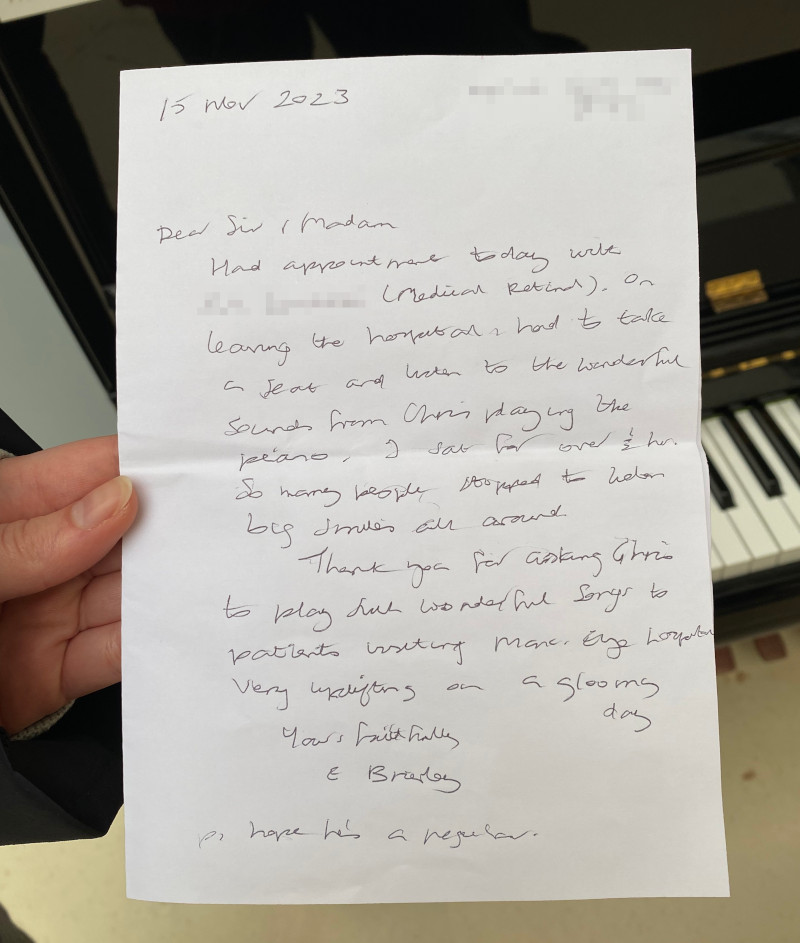 15 Nov 2023
Dear Sir / Madam
Had appointment today with
(Medical Retina). On
leaving the hospital, had to take
a seat and listen to the wonderful
sounds from Chris playing the
piano. I sat for over ½ hr.
So many people stopped to listen
big smiles all around.
Thank you for asking Chris
to play such wonderful songs to
patients visiting Manc. Eye hospital
Very uplifting on a gloomy
day
Yours faithfully
E Brierley
ps hope he's a regular.